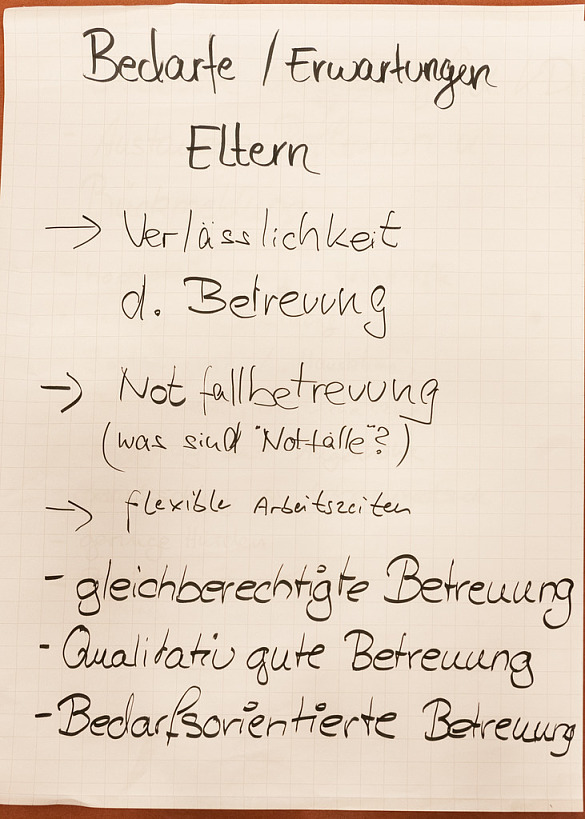 Bedarfe / Erwartungen
Eltern
→ Verlässlichkeit
d. Betreuung
→ Notfallbetreuung
(was sind "Notfälle"?)
→ flexible Arbeitszeiten
- gleichberechtigte Betreuung
- Qualitativ gute Betreuung
- Bedarfsorientierte Betreuung